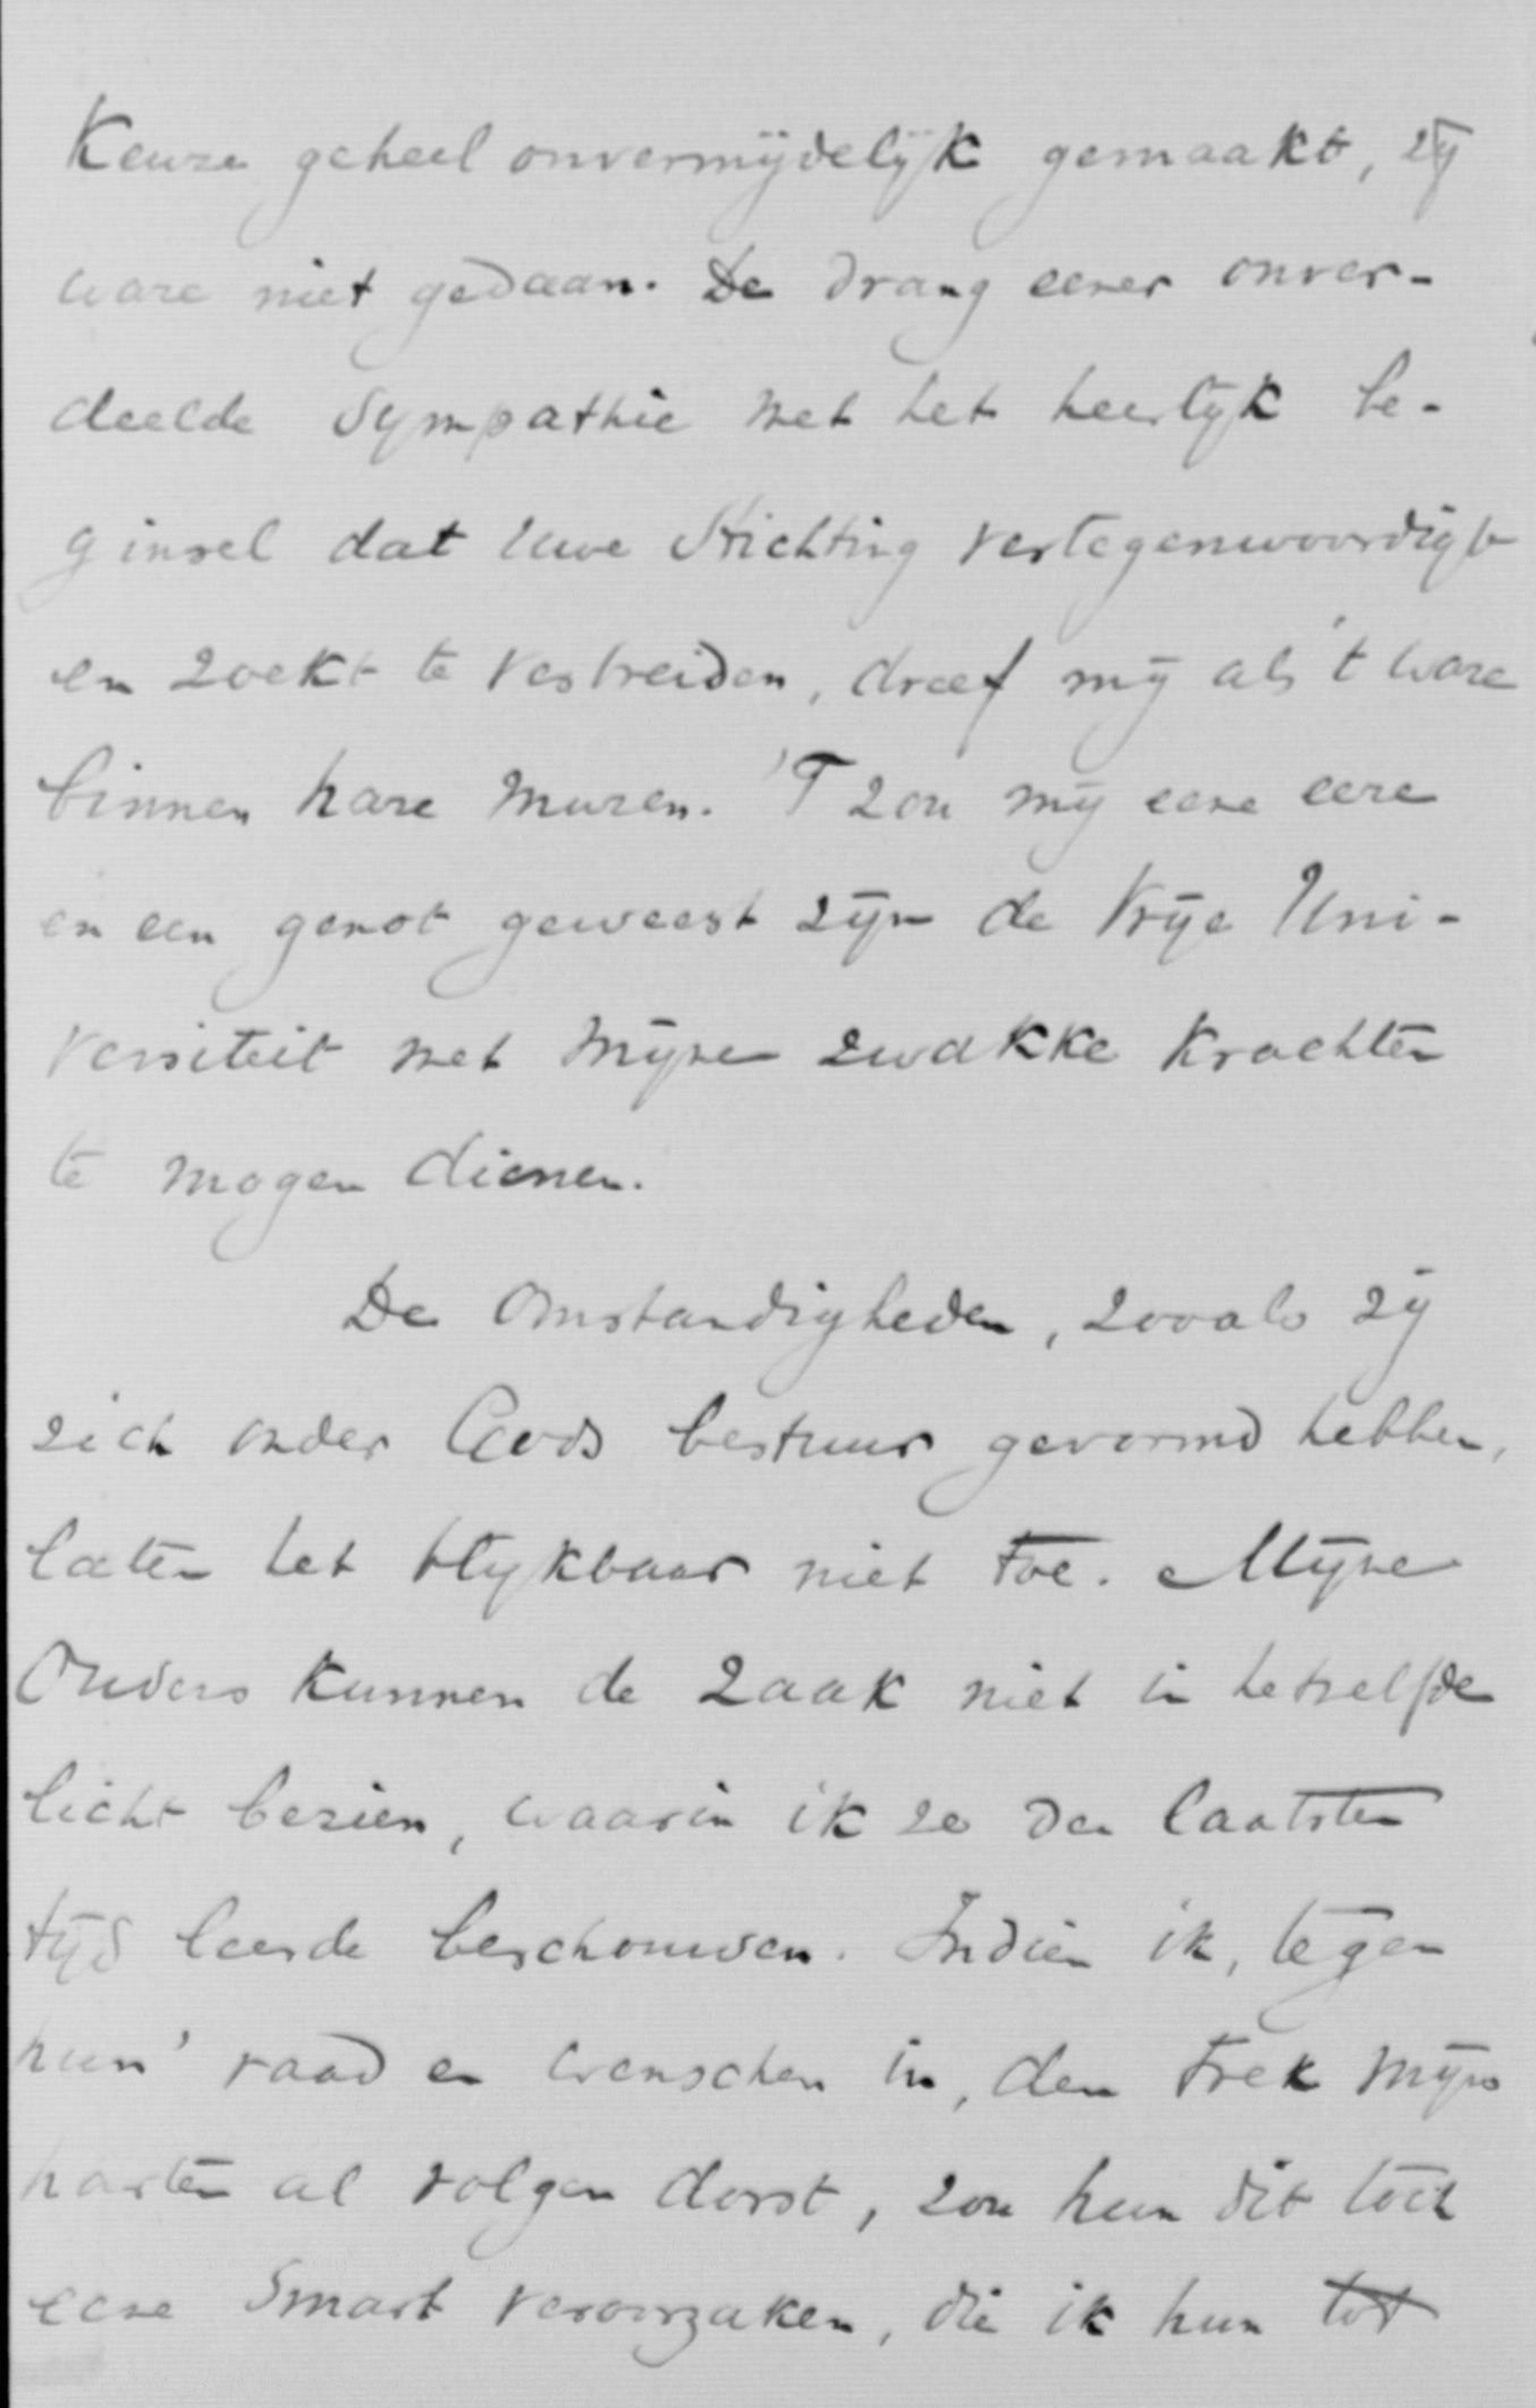 Keuze geheel onvermijdelijk gemaakt, zij
ware niet gedaan. De drang eener onver-
deelde sympathie met het heerlijk be-
ginsel dat Uwe Stichting vertegenwoordigt
en zoekt te verbreiden, dreef mij als 't ware
binnen hare muren. 'T zou mij eene eere
en een genot geweest zijn de Vrije Uni-
versiteit met mijne zwakke krachten
te mogen dienen.
De omstandigheden, zooals zij
zich onder Gods bestuur gevormd hebben,
laten het blijkbaar niet toe. Mijne
Ouders kunnen de zaak niet in hetzelfde
licht bezien, waarin ik ze den laatsten
tijd leerde beschouwen. Indien ik, tegen
hun' raad en wenschen in, den trek mijns
harten al volgen dorst, zou hun dit toch
eene smart veroorzaken, die ik hun tot